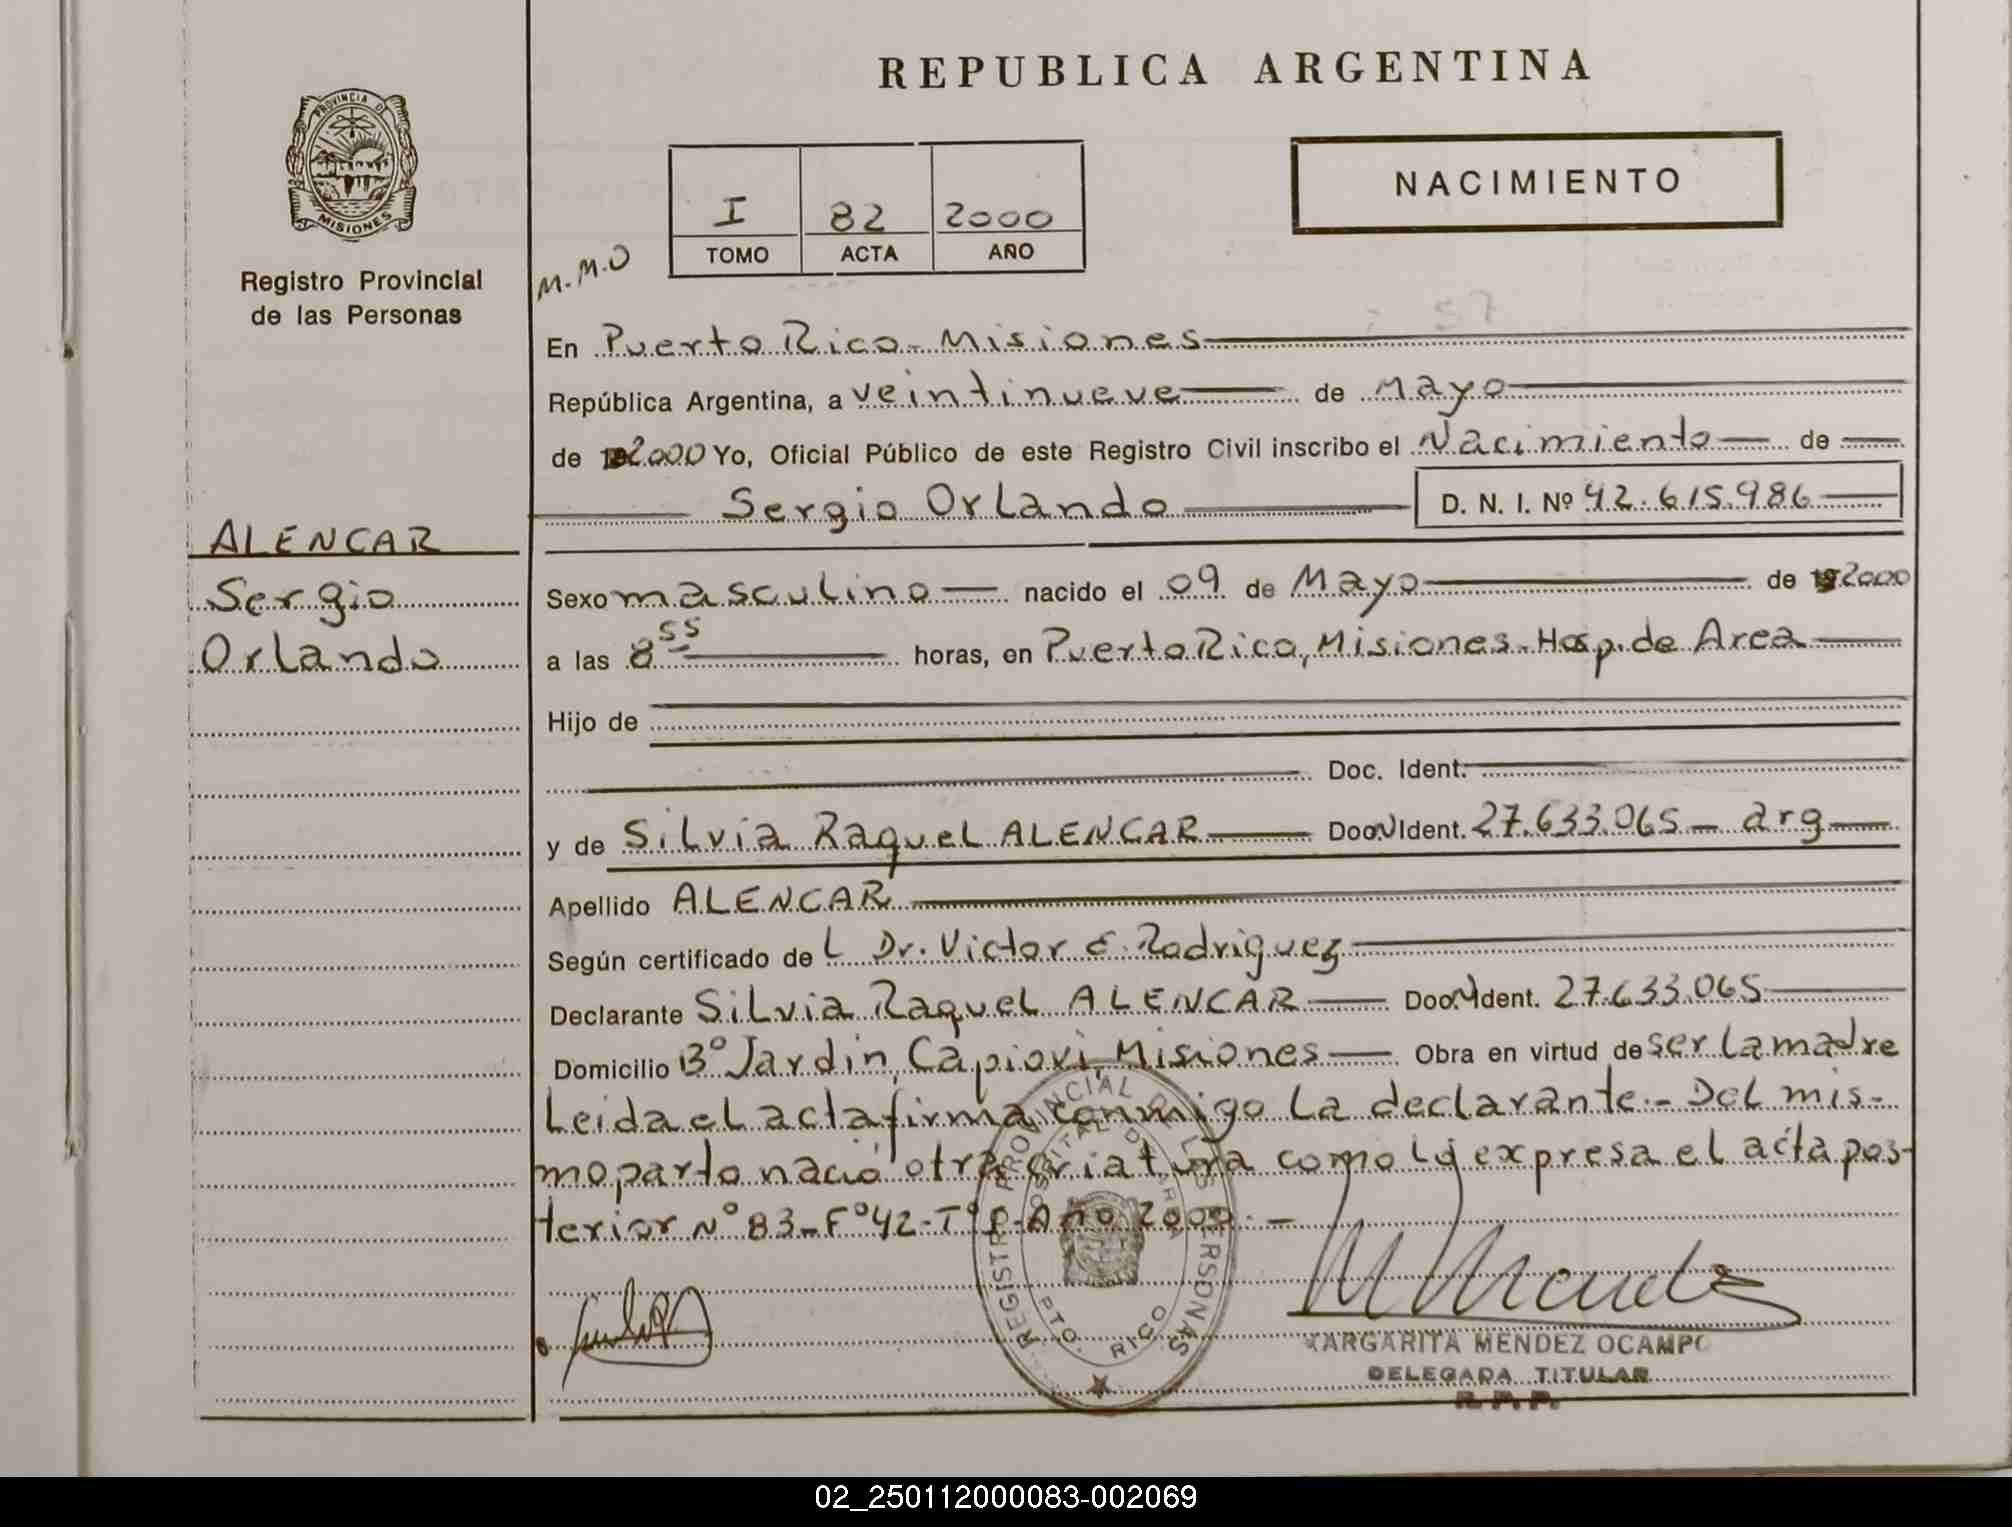 REPUBLICA ARGENTINA
PROVINCIA D
MISIONES
Registro Provincial
de las Personas
NACIMIENTO
I 82 2000
TOMO ACTA AÑO
M.M.O
En Puerto Rico - Misiones
República Argentina, a veintinueve de Mayo
de 2000 Yo, Oficial Público de este Registro Civil inscribo el Nacimiento de
Sergio Orlando D. N. I. Nº 42.615.986
ALENCAR
Sergio
Orlando
Sexo masculino nacido el 09 de Mayo de 2000
a las 8 55 horas, en Puerto Rico, Misiones - Hosp. de Area
Hijo de
Doc. Ident.
y de Silvia Raquel ALENCAR Doc. Ident. 27.633.065 - arg
Apellido ALENCAR
Según certificado de L Dr. Victor E. Rodriguez
Declarante Silvia Raquel ALENCAR Doc. Ident. 27.633.065
Domicilio Bº Jardin, Capiovi, Misiones Obra en virtud de ser la madre
Leida el acta firma conmigo la declarante.- Del mis-
mo parto nació otra criatura como lo expresa el acta pos-
terior Nº 83 - Fº 42 - Tº I - Año 2000. -
REGISTRO PROVINCIAL DE LAS PERSONAS
HOSPITAL DE AREA
PTO. RICO
MARGARITA MENDEZ OCAMPO
DELEGADA TITULAR
R.P.P.
02_250112000083-002069